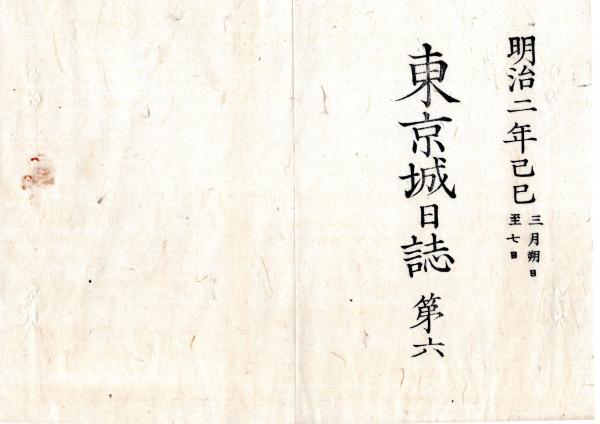 明治二年己巳
三月朔日
至七日
東京城日誌 第六